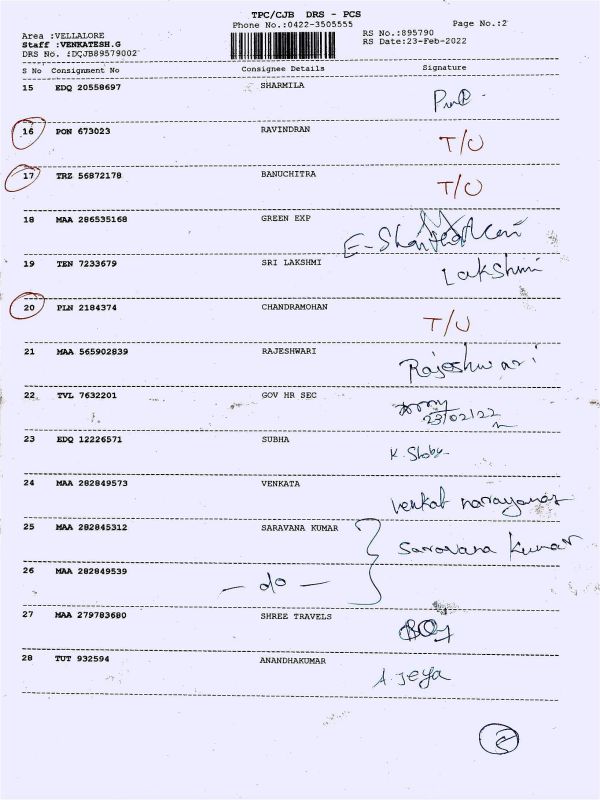 TPC/CJB DRS - PCS
Phone No.:0422-3505555
Page No.:2
Area :VELLALORE
RS No.:895790
Staff :VENKATESH.G
RS Date:23-Feb-2022
DRS No. :DCJB89579002
S No Consignment No Consignee Details Signature
15 EDQ 20558697 SHARMILA
16 PON 673023 RAVINDRAN T/U
17 TRZ 56872178 BANUCHITRA T/U
18 MAA 286535168 GREEN EXP
19 TEN 7233679 SRI LAKSHMI Lakshmi
20 PLN 2184374 CHANDRAMOHAN T/U
21 MAA 565902839 RAJESHWARI Rajeshwari
22 TVL 7632201 GOV HR SEC
23/02/22
23 EDQ 12226571 SUBHA
24 MAA 282849573 VENKATA Venkat narayanan
25 MAA 282845312 SARAVANA KUMAR Saravana Kumar
26 MAA 282849539 - do -
27 MAA 279783680 SHREE TRAVELS
28 TUT 932594 ANANDHAKUMAR A. Jeya